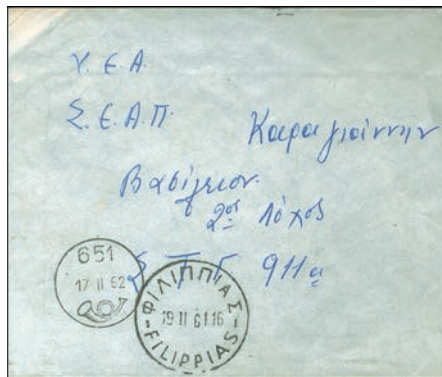 Υ. Ε. Α.
Σ. Ε. Α. Π. Καραγιάννην
Βασίλειον
2ος λόχος
Σ Τ Γ 911α
651
17 II 62
ΦΙΛΙΠΠΙΑΣ
19 11 61 16
FILIPPIAS